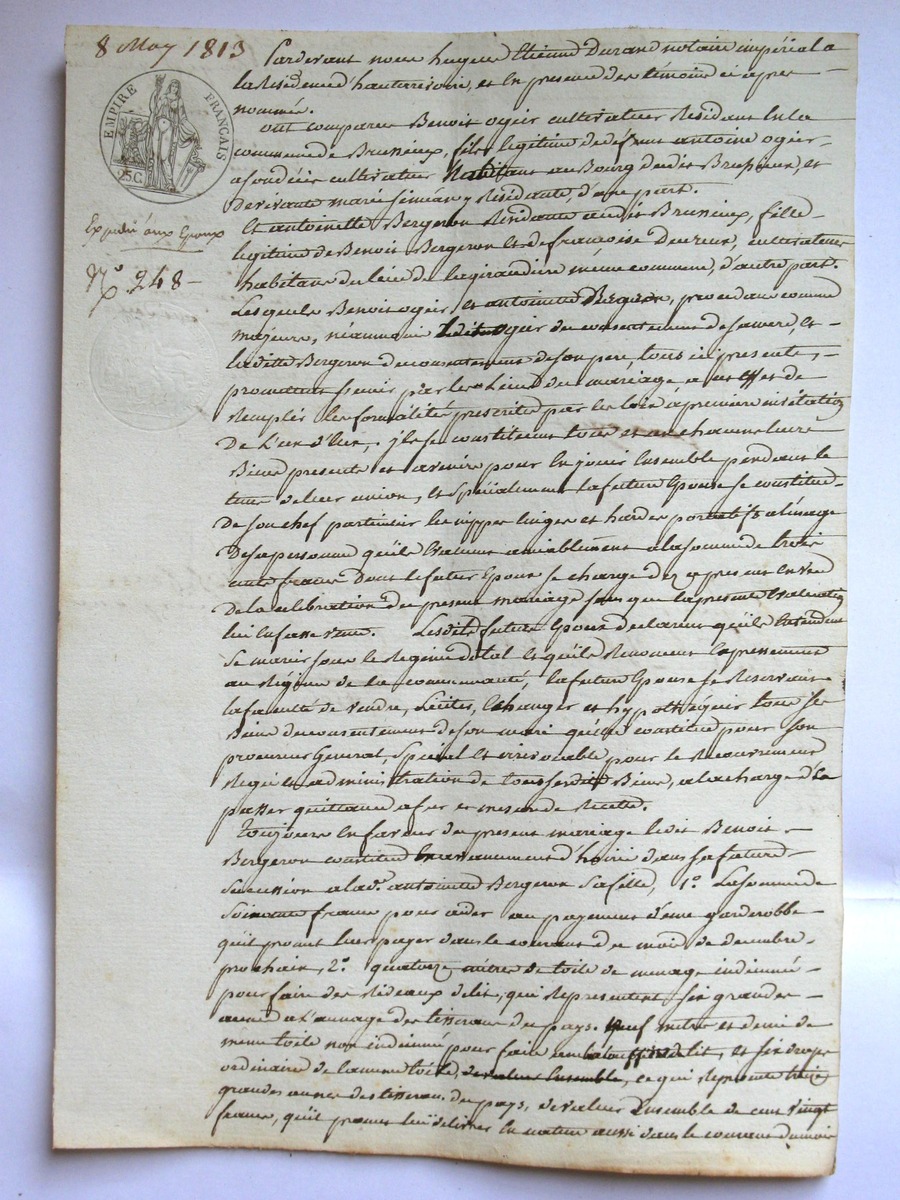 8 May 1813
EMPIRE FRANÇAIS
25 C.
Expédié aux Epoux
N.º 248
Pardevant nous hugues Etienne Durand notaire impérial a
la Residence d'hauterivoire, et en presence des témoins ci apres
nommés.
ont comparu Benoit ogier cultivateur Residant en la
commune de Brussieux, fils legitime de défunt antoine ogier
a son décès cultivateur habitant au Bourg dudit Brussieux, et
de vivante marie y Residante, d'une part.
Et antoinette Bergeron Residante audit Brussieux, fille
legitime de Benoit Bergeron et de françoise cultivateurs
habitans du lieu de lagirandière même commune, d'autre part.
Lesquels Benoit ogier et antoinette Bergeron, procedans comme
majeurs, néanmoins ledit ogier du consentement de sa mere, et
laditte Bergeron du consentement de son pere, tous ici presents,
promettent s'unir par les liens du mariage, a cet effet de
Remplir les formalités prescrites par les loix a premiere Réquisition
De l'un d'eux, ils se constituent tous et un chacuns leurs
Biens presents et avenirs pour en jouir Ensemble pendant le
tems de leur union, et spécialement la future Epouse se constitue
De son chef particulier les nippes linges et hardes portatifs a l'usage
De sa personne qu'ils Evaluent amiablement a la somme de trois
cents francs dont le futur Epoux se charge dez a present En vue
De la celebration du present mariage sans que la presente Evaluation
lui en fasse vente. Lesdits futurs Epoux declarent qu'ils Entendent
se marier sous le Regime dotal et qu'ils Renoncent Expressement
au Régime de la communauté, la future Epouse se Reservant
la faculté de vendre, Liciter, Echanger et hypothéquer tous ses
Biens du consentement de son mari qu'elle constitue pour son
procureur General, Spécial et irrévocable pour le Recouvrement
Regie et administration de tous sesdits Biens, a la charge d'En
passer quittance a fur et mesure de Recette.
Toujours En faveur du present mariage ledit Benoit
Bergeron constitue En avancement d'hoirie dans sa future
succession a lad.e antoinette Bergeron sa fille, 1.º La somme de
soixante francs pour aider au payement d'une garderobbe
qu'il promet leur payer dans le courant du mois de decembre
prochain, 2.º quatorze mètres de toile de menage indienné
pour faire des Rideaux de lit, qui Representent six grandes
aunes a l'aunage des tisserans du pays. neuf mètres et demi de
meme toile non indienné pour faire de lit, et six draps
ordinaires de la meme toile, de valeur Ensemble, ce qui Represente treize
grandes aunes des tisserans du pays, de valeur Ensemble de cent vingt
francs, qu'il promet lui délivrer En nature aussi dans le courant du mois